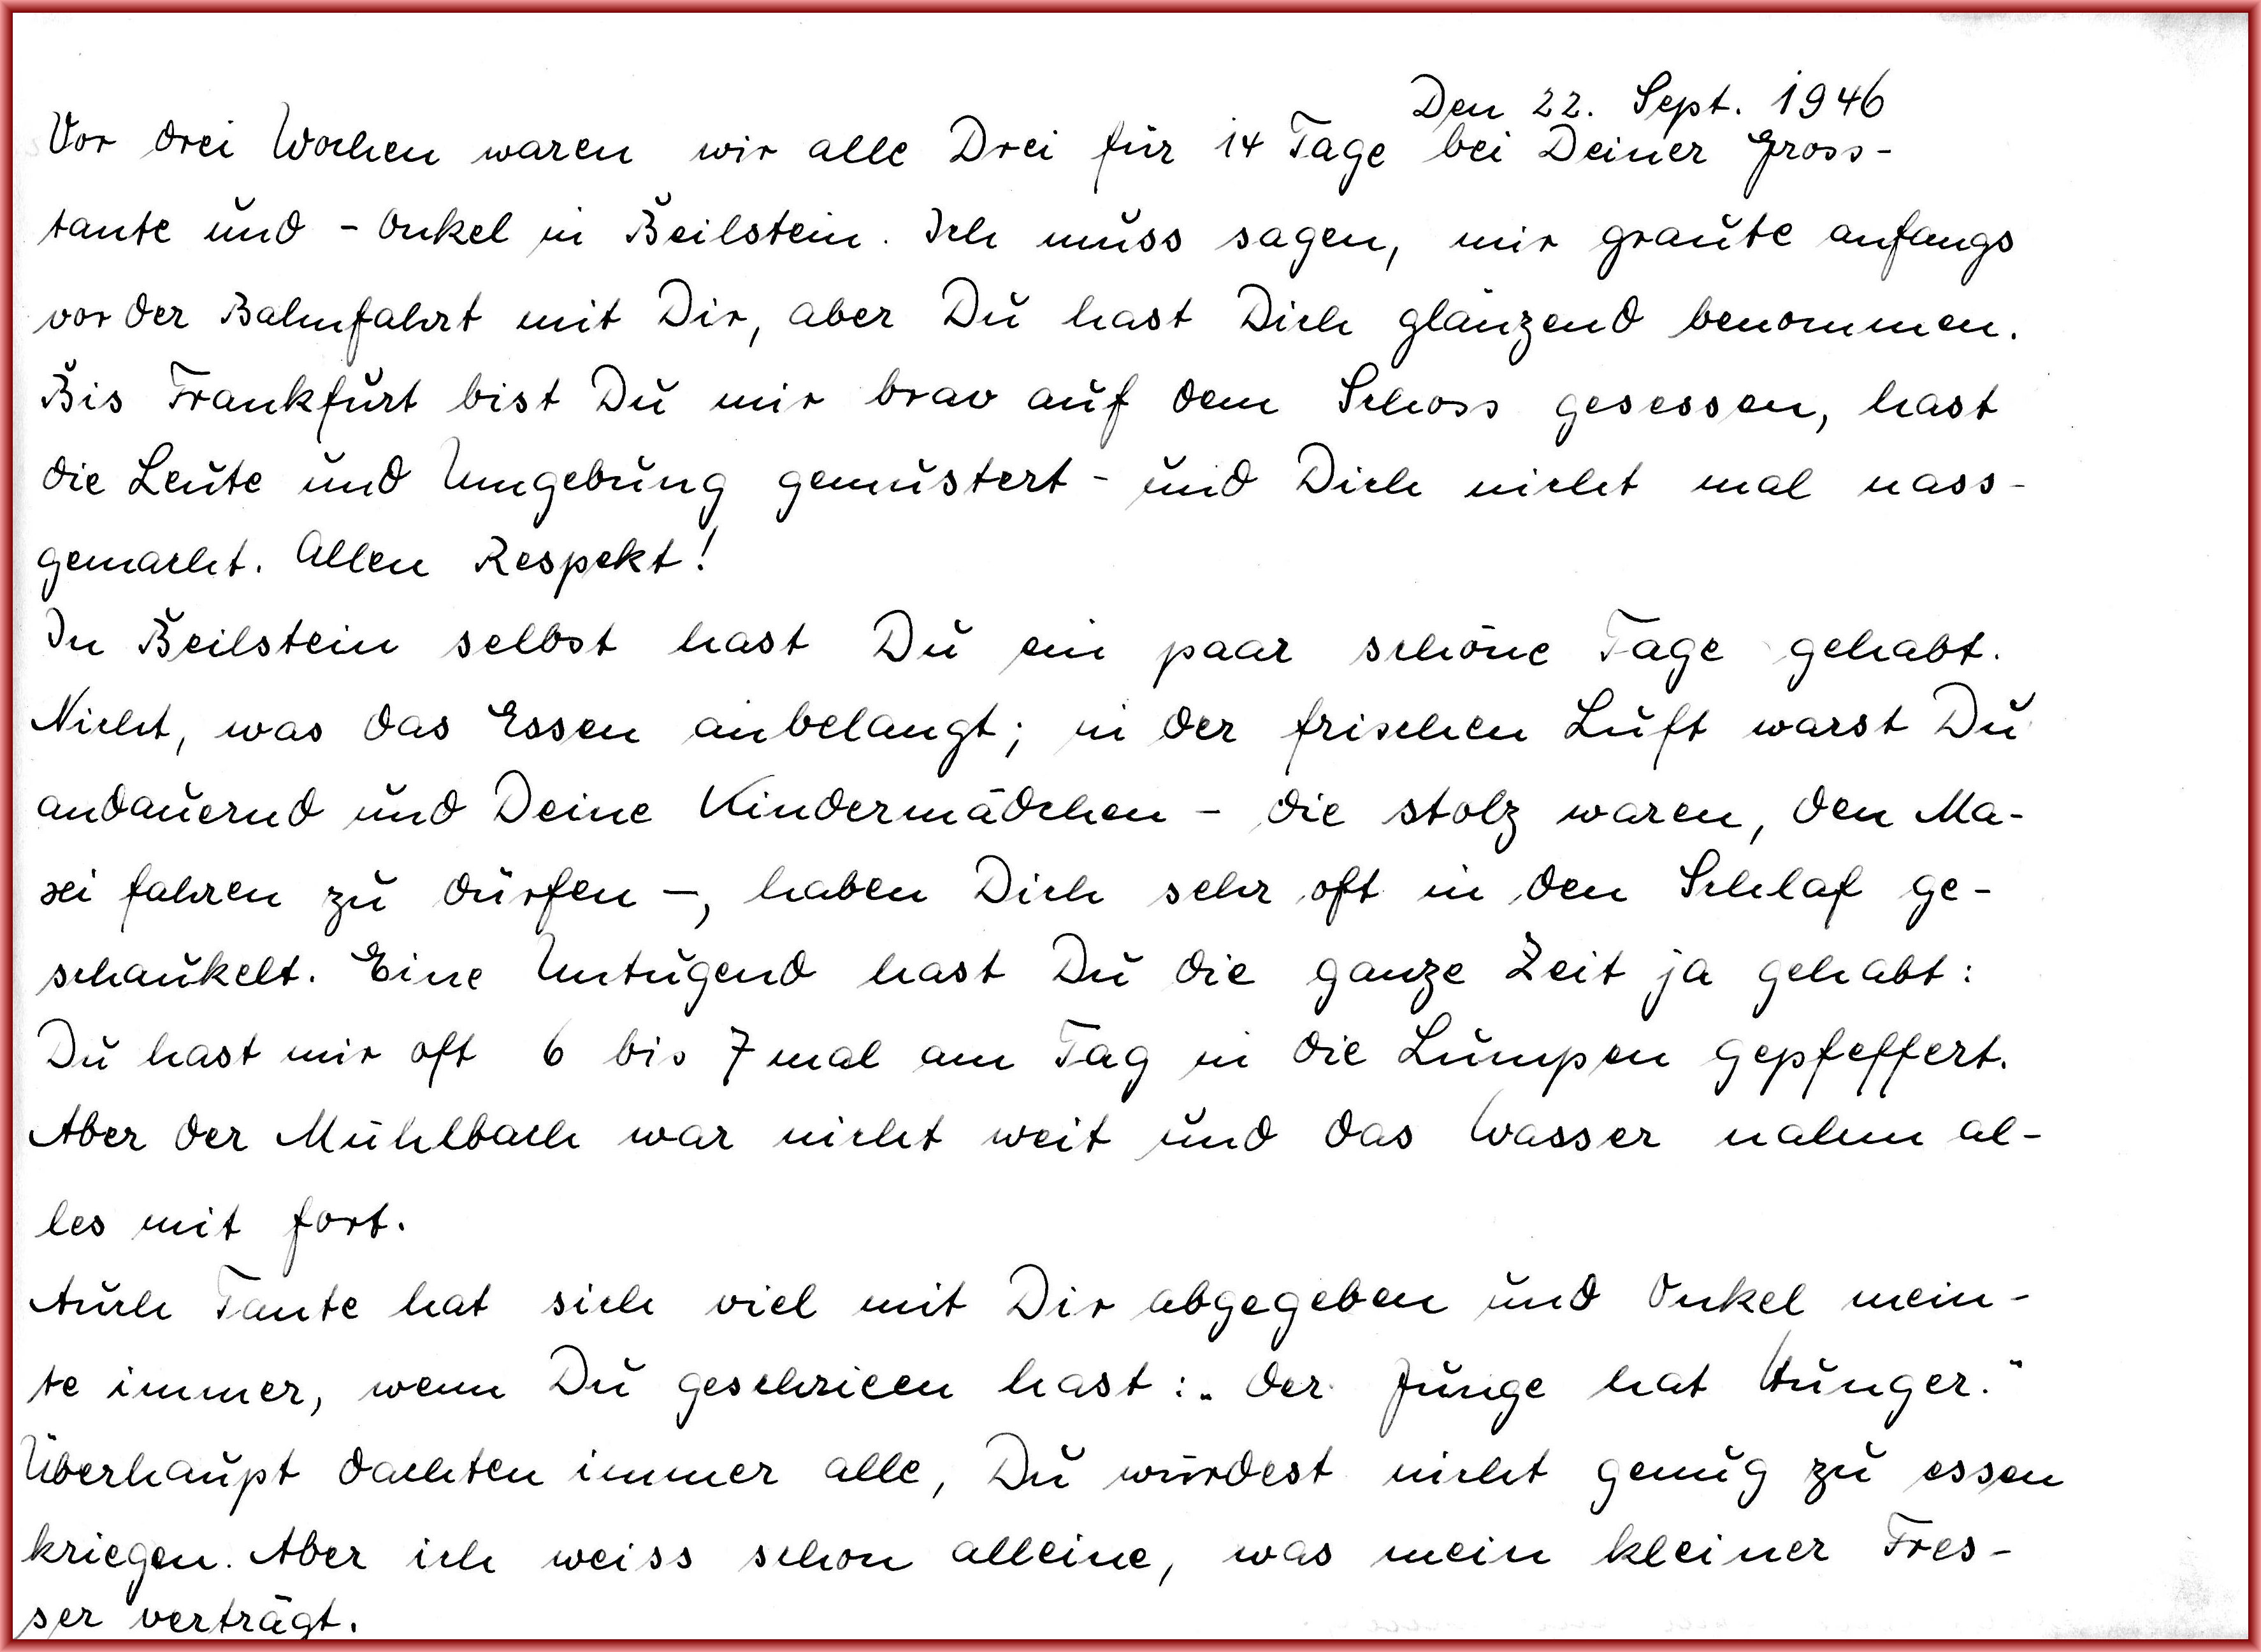 Den 22. Sept. 1946
Vor drei Wochen waren wir alle Drei für 14 Tage bei Deiner Gross-
tante und - Onkel in Beilstein. Ich muss sagen, mir graute anfangs
vor der Bahnfahrt mit Dir, aber Du hast Dich glänzend benommen.
Bis Frankfurt bist Du mir brav auf dem Schoss gesessen, hast
die Leute und Umgebung gemustert - und Dich nicht mal nass-
gemacht. Allen Respekt!
In Beilstein selbst hast Du ein paar schöne Tage gehabt.
Nicht, was das Essen anbelangt; in der frischen Luft warst Du
andauernd und Deine Kindermädchen - die stolz waren, den Ma-
xei fahren zu dürfen -, haben Dich sehr oft in den Schlaf ge-
schaukelt. Eine Untugend hast Du die ganze Zeit ja gehabt:
Du hast mir oft 6 bis 7 mal am Tag in die Lumpen gepfeffert.
Aber der Mühlbach war nicht weit und das Wasser nahm al-
les mit fort.
Auch Tante hat sich viel mit Dir abgegeben und Onkel mein-
te immer, wenn Du geschrieen hast: „ der Junge hat Hunger.“
Überhaupt dachten immer alle, Du würdest nicht genug zu essen
kriegen. Aber ich weiss schon alleine, was mein kleiner Fres-
ser verträgt.